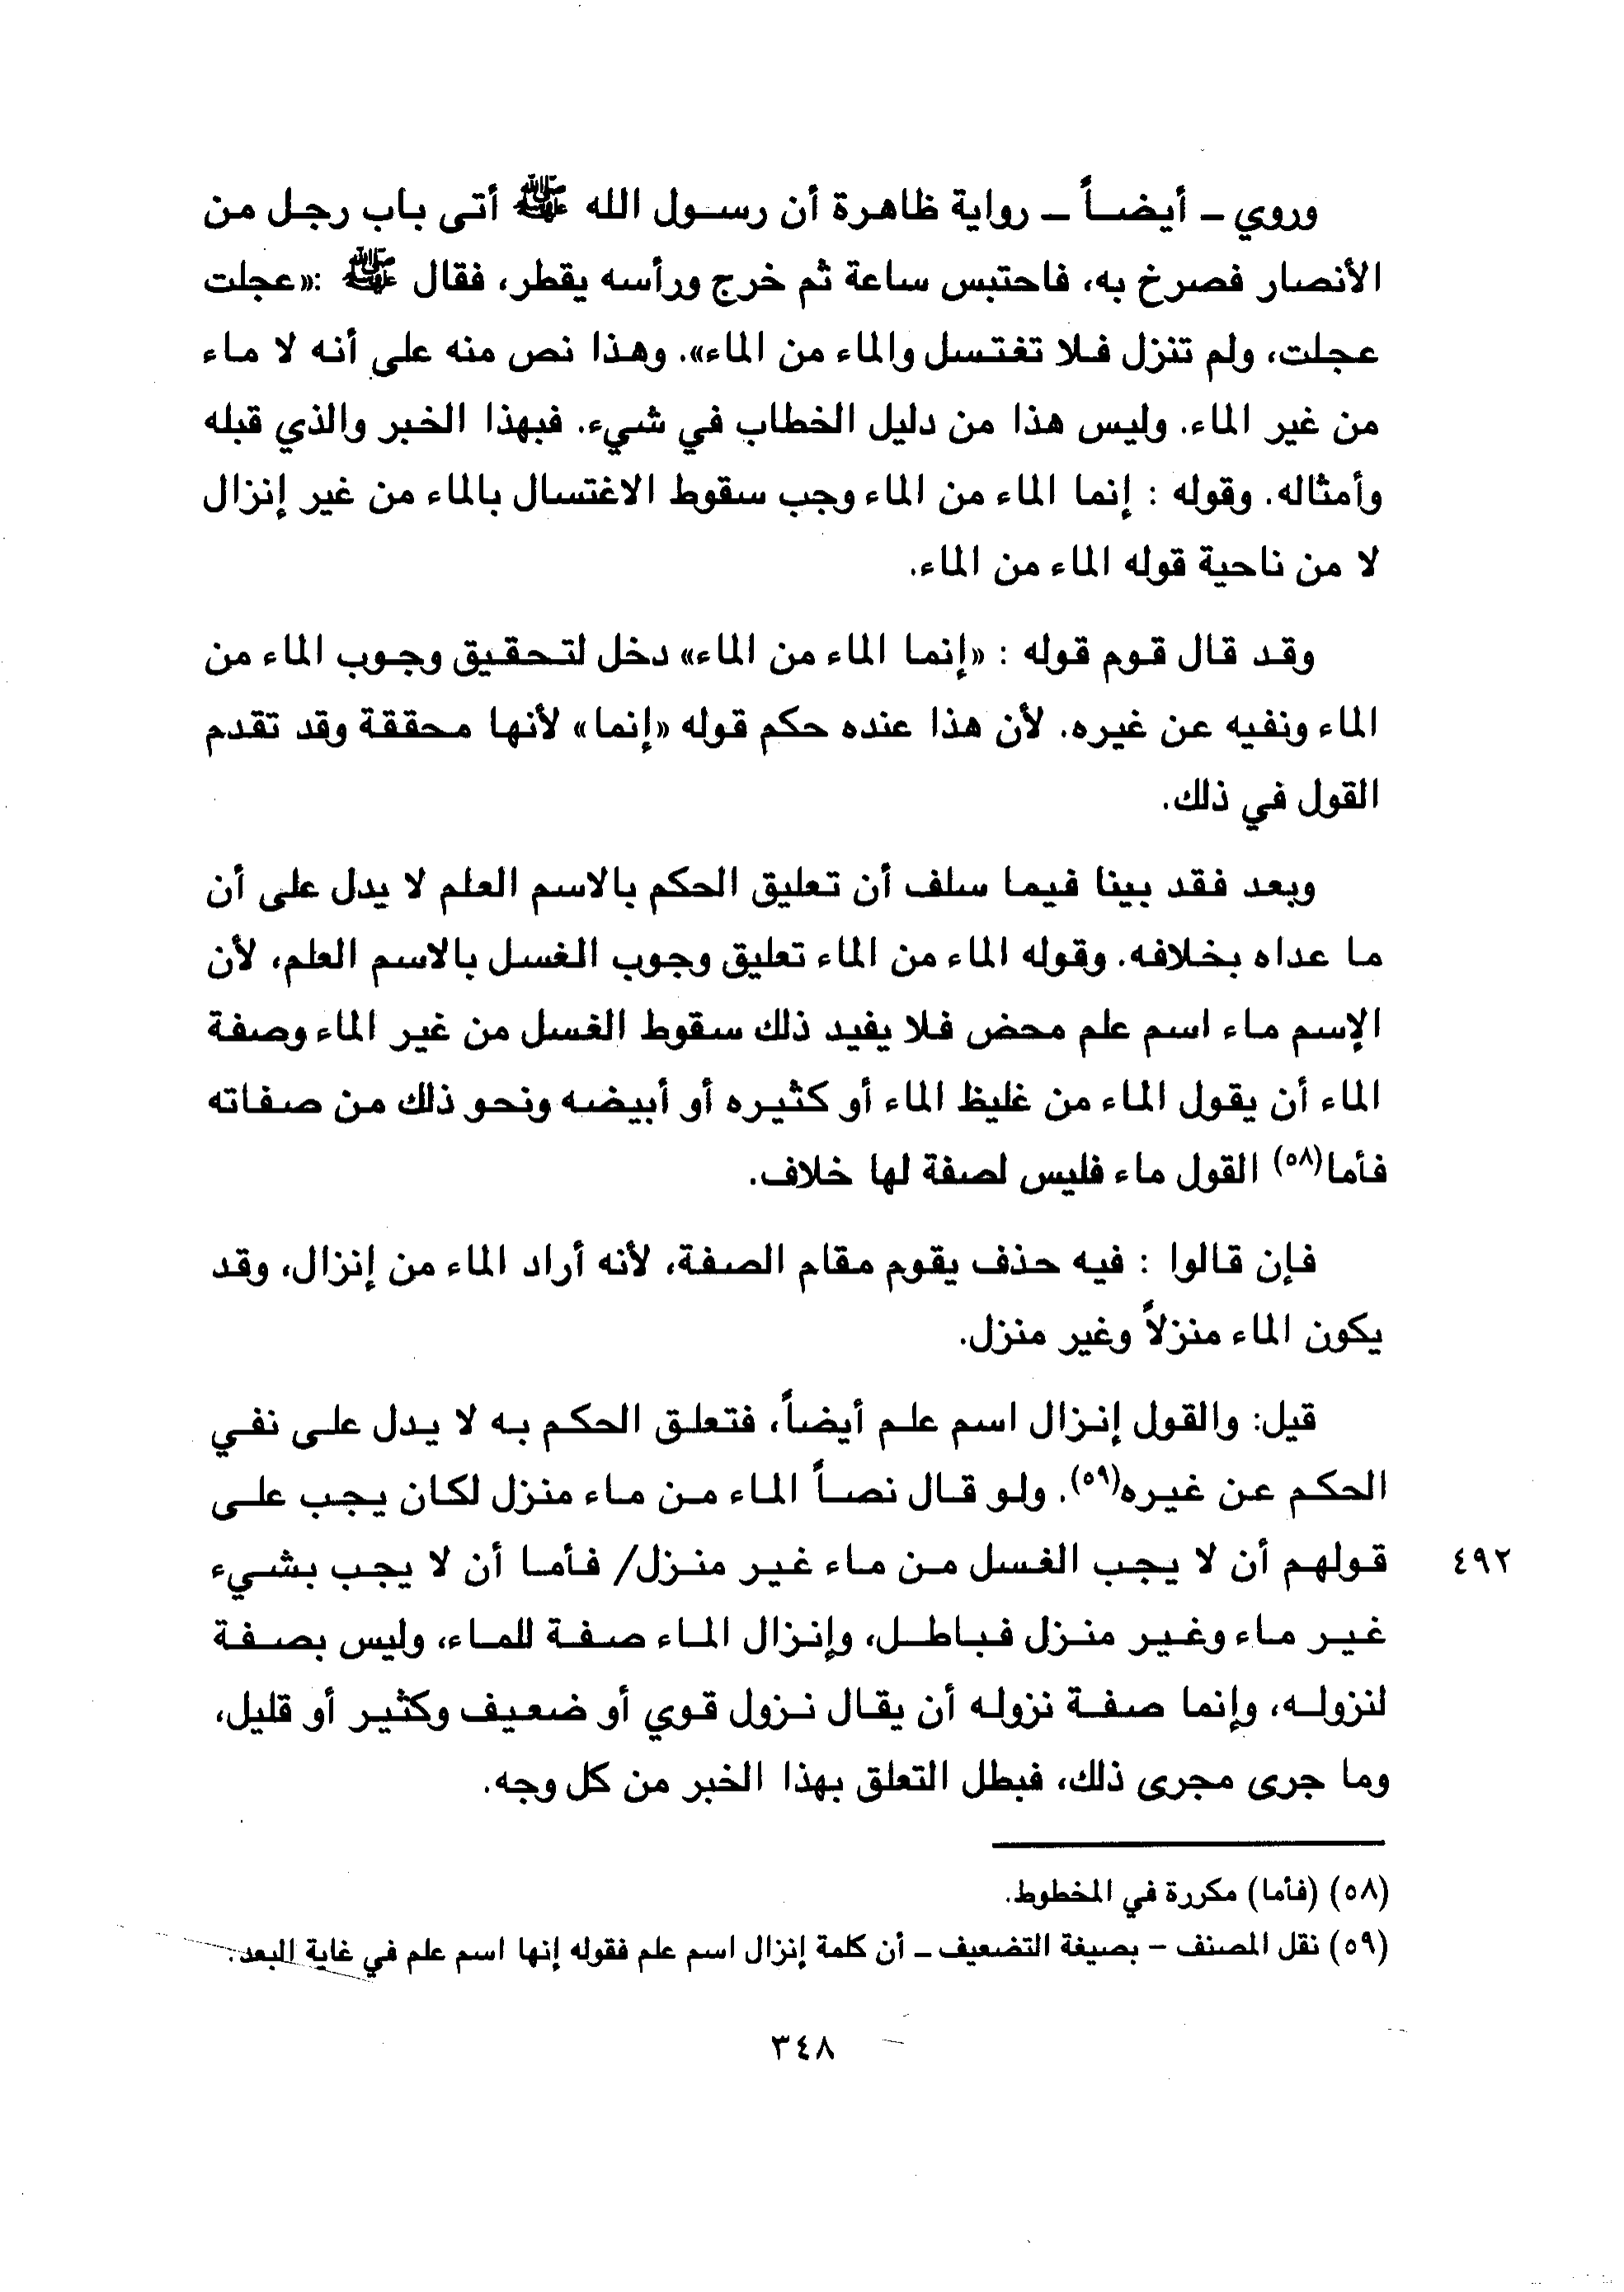 وروي ـ أيضاً ـ رواية ظاهرة أن رسول الله ﷺ أتى باب رجل من
الأنصار فصرخ به، فاحتبس ساعة ثم خرج ورأسه يقطر، فقال ﷺ :«عجلت
عجلت، ولم تنزل فلا تغتسل والماء من الماء». وهذا نص منه على أنه لا ماء
من غير الماء. وليس هذا من دليل الخطاب في شيء. فبهذا الخبر والذي قبله
وأمثاله. وقوله : إنما الماء من الماء وجب سقوط الاغتسال بالماء من غير إنزال
لا من ناحية قوله الماء من الماء.
وقد قال قوم قوله : «إنما الماء من الماء» دخل لتحقيق وجوب الماء من
الماء ونفيه عن غيره. لأن هذا عنده حكم قوله «إنما» لأنها محققة وقد تقدم
القول في ذلك.
وبعد فقد بينا فيما سلف أن تعليق الحكم بالاسم العلم لا يدل على أن
ما عداه بخلافه. وقوله الماء من الماء تعليق وجوب الغسل بالاسم العلم، لأن
الإسم ماء اسم علم محض فلا يفيد ذلك سقوط الغسل من غير الماء وصفة
الماء أن يقول الماء من غليظ الماء أو كثيره أو أبيضه ونحو ذلك من صفاته
فأما(٥٨) القول ماء فليس لصفة لها خلاف.
فإن قالوا : فيه حذف يقوم مقام الصفة، لأنه أراد الماء من إنزال، وقد
يكون الماء منزلاً وغير منزل.
قيل: والقول إنزال اسم علم أيضاً، فتعلق الحكم به لا يدل على نفي
الحكم عن غيره(٥٩). ولو قال نصاً الماء من ماء منزل لكان يجب على
قولهم أن لا يجب الغسل من ماء غير منزل/ فأما أن لا يجب بشيء ٤٩٢
غير ماء وغير منزل فباطل، وإنزال الماء صفة للماء، وليس بصفة
لنزوله، وإنما صفة نزوله أن يقال نزول قوي أو ضعيف وكثير أو قليل،
وما جرى مجرى ذلك، فبطل التعلق بهذا الخبر من كل وجه.
(٥٨) (فأما) مكررة في المخطوط.
(٥٩) نقل المصنف – بصيغة التضعيف ـ أن كلمة إنزال اسم علم فقوله إنها اسم علم في غاية البعد.
٣٤٨